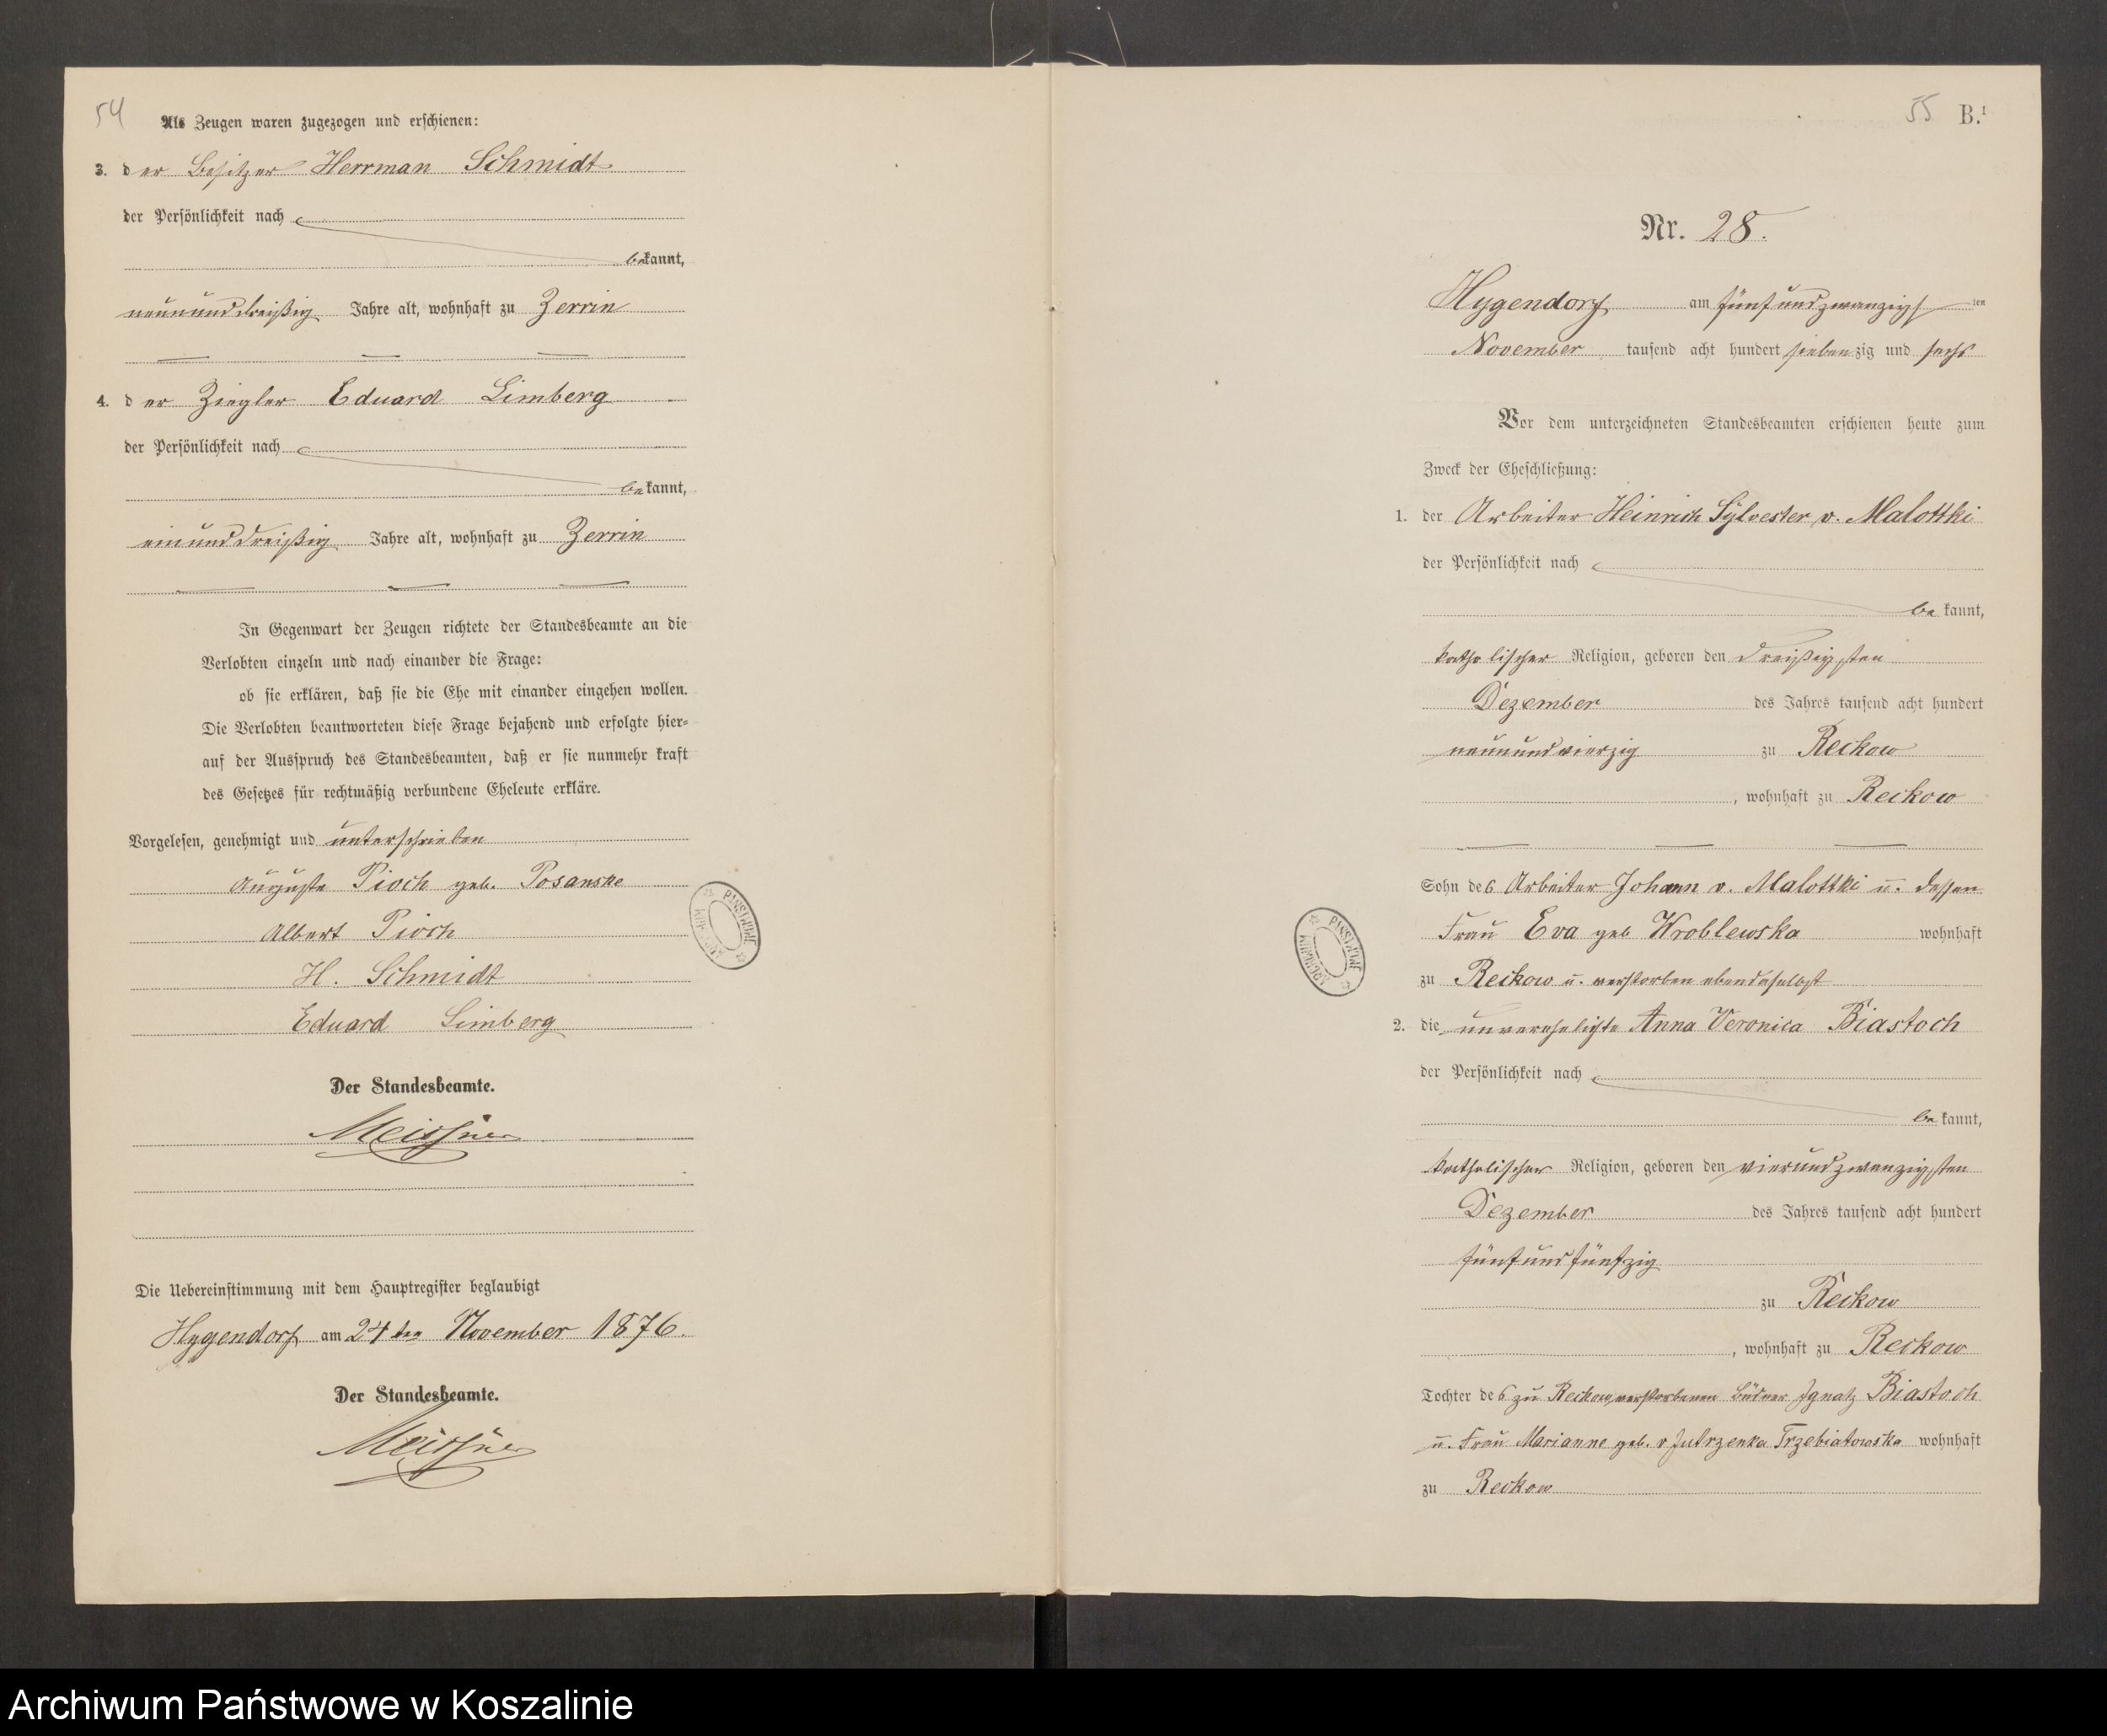 54
Als Zeugen waren zugezogen und erschienen:
3. der Besitzer Herrman Schmidt
der Persönlichkeit nach
bekannt,
neununddreißig Jahre alt, wohnhaft zu Zerrin
4. der Ziegler Eduard Limberg
der Persönlichkeit nach
bekannt,
einunddreißig Jahre alt, wohnhaft zu Zerrin
In Gegenwart der Zeugen richtete der Standesbeamte an die
Verlobten einzeln und nach einander die Frage:
ob sie erklären, daß sie die Ehe mit einander eingehen wollen.
Die Verlobten beantworteten diese Frage bejahend und erfolgte hier-
auf der Ausspruch des Standesbeamten, daß er sie nunmehr kraft
des Gesetzes für rechtmäßig verbundene Eheleute erkläre.
Vorgelesen, genehmigt und unterschrieben
Auguste Pioch geb. Posanske
Albert Pioch
H. Schmidt
Eduard Limberg
Der Standesbeamte.
Meissner
Die Uebereinstimmung mit dem Hauptregister beglaubigt
Hygendorf am 24ten November 1876.
Der Standesbeamte.
Meissner
55 B.¹
Nr. 28.
Hygendorf am fünfundzwanzigsten
November tausend acht hundert siebenzig und sechs
Vor dem unterzeichneten Standesbeamten erschienen heute zum
Zweck der Eheschließung:
1. der Arbeiter Heinrich Sylvester v. Malottki
der Persönlichkeit nach
bekannt,
katholischer Religion, geboren den dreißigsten
Dezember des Jahres tausend acht hundert
neunundvierzig zu Reckow
, wohnhaft zu Reckow
Sohn des Arbeiter Johann v. Malottki u. dessen
Frau Eva geb Wroblewska wohnhaft
zu Reckow u. verstorben ebendaselbst
2. die unverehelichte Anna Veronica Biastoch
der Persönlichkeit nach
bekannt,
katholischer Religion, geboren den vierundzwanzigsten
Dezember des Jahres tausend acht hundert
fünfundfünfzig
zu Reckow
, wohnhaft zu Reckow
Tochter des zu Reckow verstorbenen Büdner Ignatz Biastoch
u. Frau Marianne geb. v Jutrzenka Trzebiatowska wohnhaft
zu Reckow
PAŃSTWOWE
PAŃSTWOWE
Archiwum Państwowe w Koszalinie